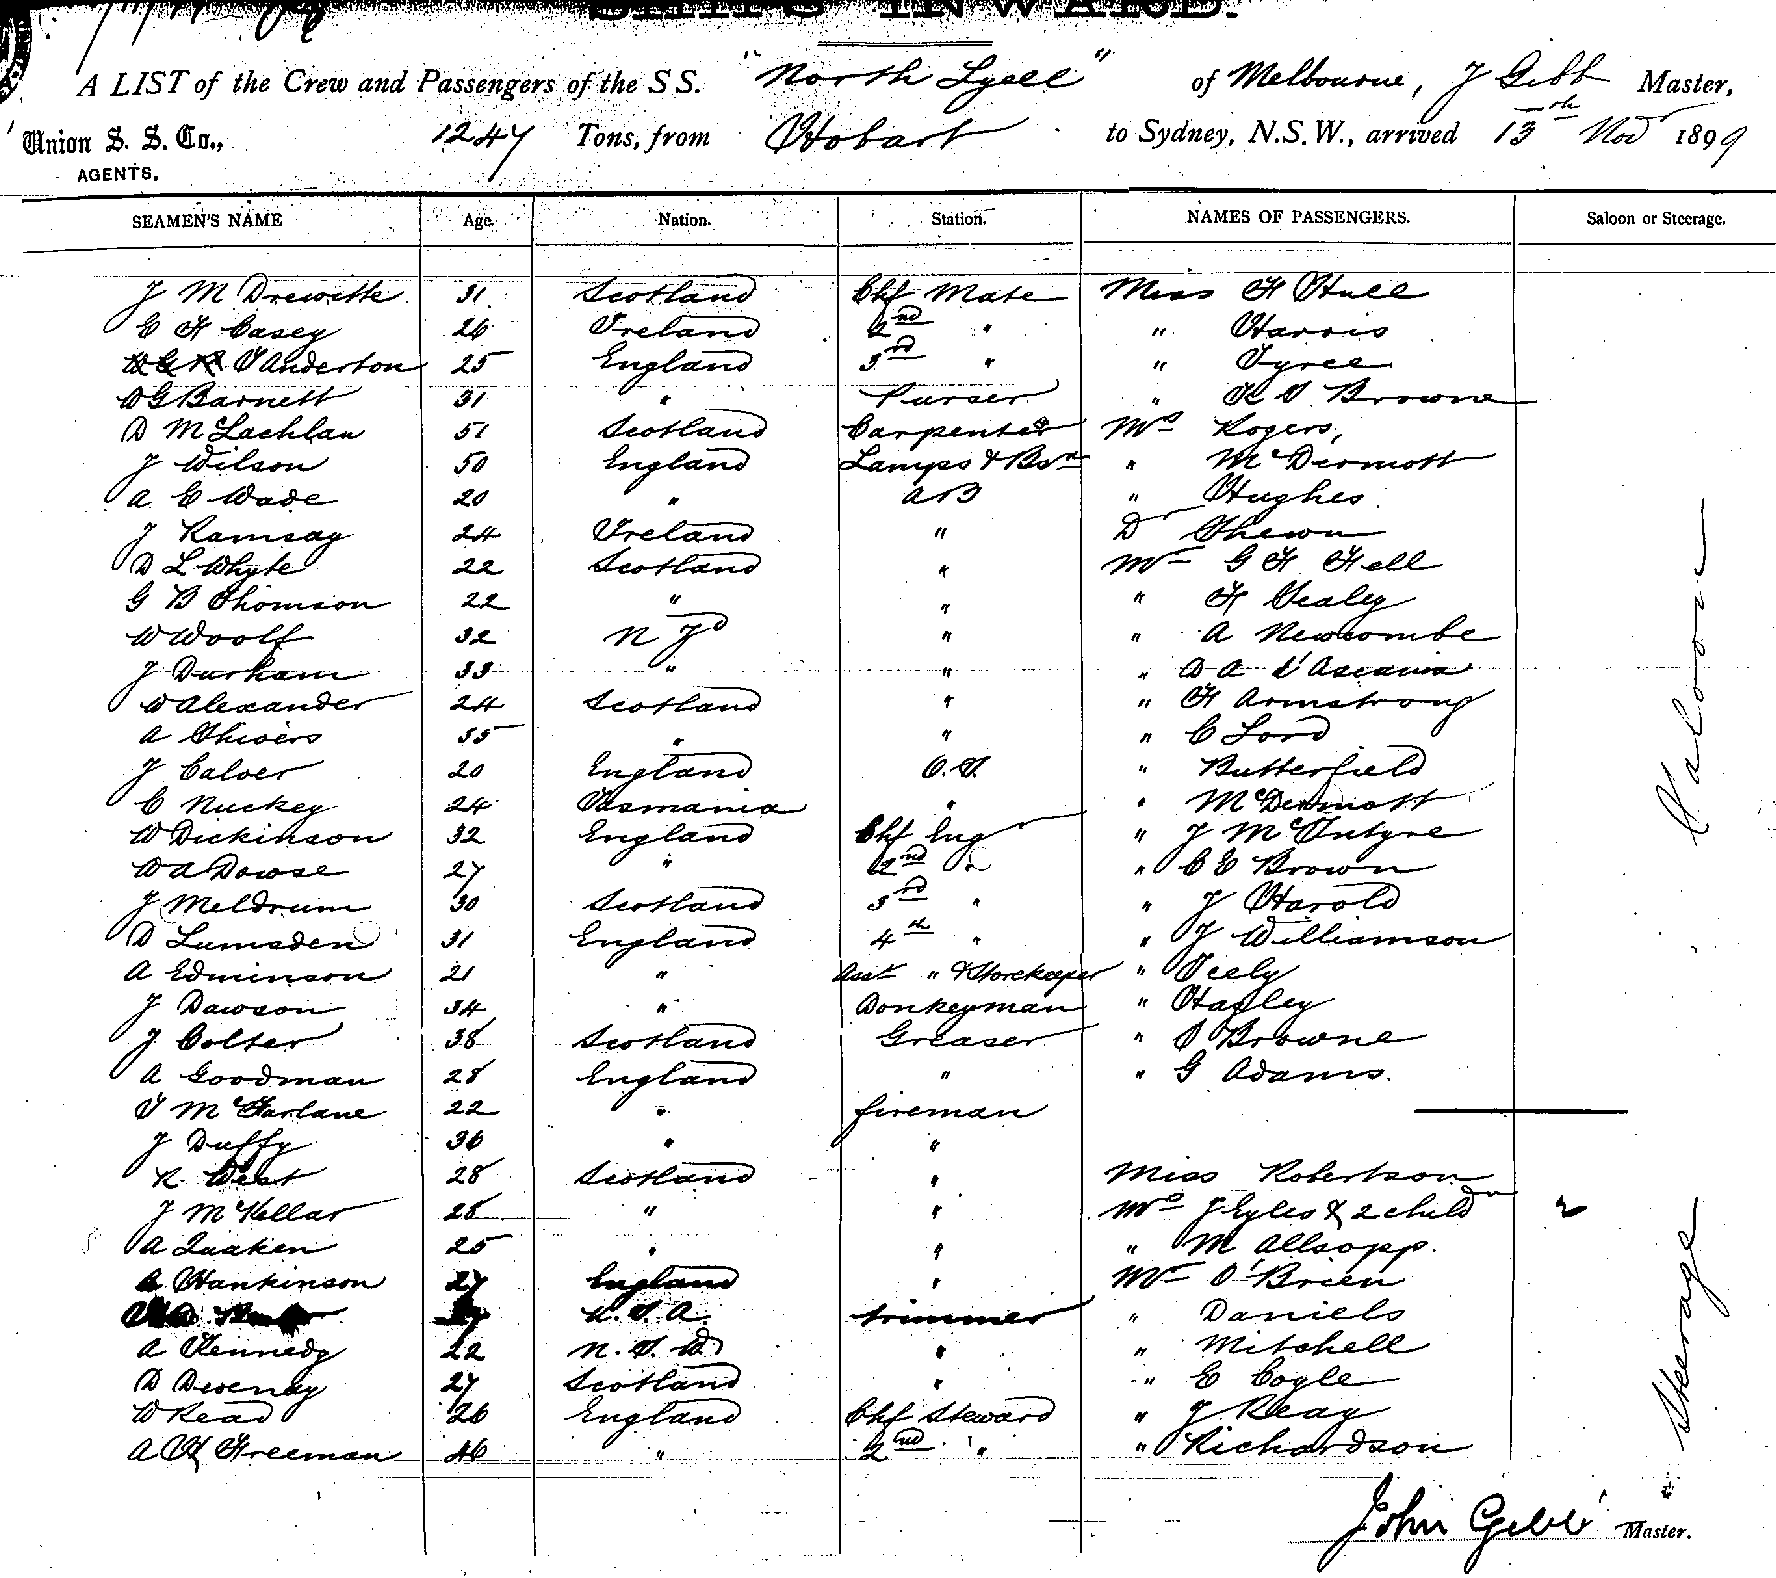 SHIPS INWARD.
A LIST of the Crew and Passengers of the S S. "North Lyell" of Melbourne, J Gibb Master,
Union S. S. Co., 1247 Tons, from Hobart to Sydney, N.S.W., arrived 13th Nov 1899
AGENTS.
SEAMEN'S NAME Age. Nation. Station. NAMES OF PASSENGERS. Saloon or Steerage.
J M Drewitte 31 Scotland Chf Mate Miss H Hull
C H Casey 26 Ireland 2nd " " Harris
T Anderton 25 England 3rd " " Tyree
W G Barnett 31 " Purser " K S Browne
D McLachlan 51 Scotland Carpenter Mrs Rogers,
J Wilson 50 England Lamps & Bsn " McDermott
A E Wade 20 " AB " Hughes
J Ramsay 24 Ireland " Dr Shewn
D L Whyte 22 Scotland " Mr G H Fell
G B Thomson 22 " " " H Sealey
W Woolf 32 N Zd " " A Newcombe
J Durham 33 " " " D A d'Ascania
W Alexander 24 Scotland " " H Armstrong
A Shivers 35 " " " C Lord
J Calver 20 England O.S. " Butterfield
C Nuckey 24 Tasmania " " McDermott
W Dickinson 32 England Chf Eng " J McIntyre
W A Dowse 27 " 2nd " " C E Brown
J Meldrum 30 Scotland 3rd " " J Harold
D Lumsden 31 England 4th " " J Williamson
A Edminson 21 " Asst " & Storekeeper " Seely
J Dawson 34 " Donkeyman " Hagley
J Colter 38 Scotland Greaser " S Browne
A Goodman 28 England " " G Adams.
T McFarlane 22 " fireman
J Duffy 36 " "
R West 28 Scotland " Miss Robertson
J McKellar 28 " " Mrs J Eyles & 2 childn 2
A Laaken 25 " " " M Allsopp.
A Hankinson 27 England " Mr O'Brien
U.S.A. trimmer " Daniels
A Kennedy 22 N.S.W " " Mitchell
D Deveney 27 Scotland " " E Cogle
W Read 26 England Chf Steward " J Reay
A H Freeman 46 " 2nd " " Richardson
Saloon
Steerage
John Gibb Master.